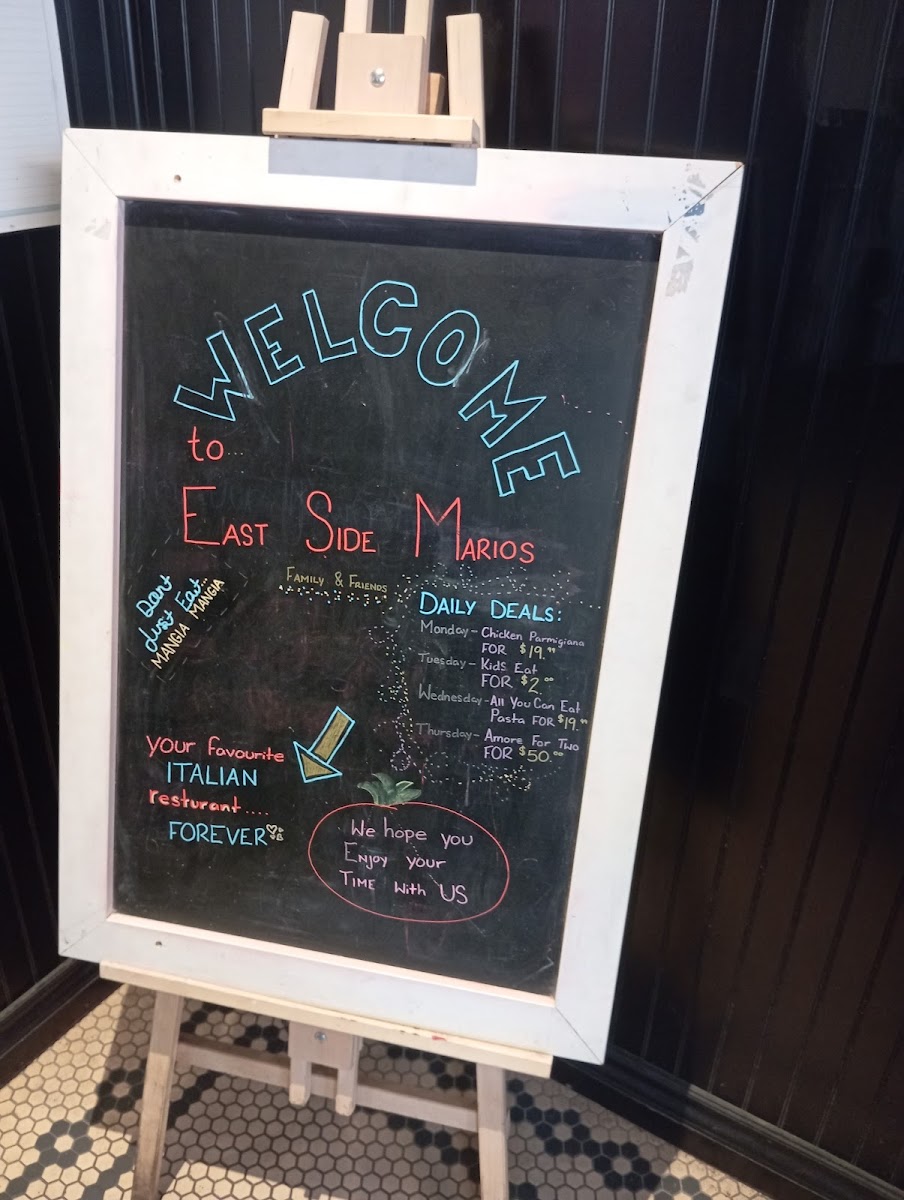 WELCOME
to...
EAST SIDE MARIOS
FAMILY & FRIENDS
Dont
Just Eat...
MANGIA MANGIA
DAILY DEALS:
Monday - Chicken Parmigiana
FOR $19.99
Tuesday - Kids Eat
FOR $2.00
Wednesday - All You Can Eat
Pasta FOR $19.99
Thursday - Amore For Two
FOR $50.00
your favourite
ITALIAN
resturant....
FOREVER
We hope you
ENJOY your
TIME with US